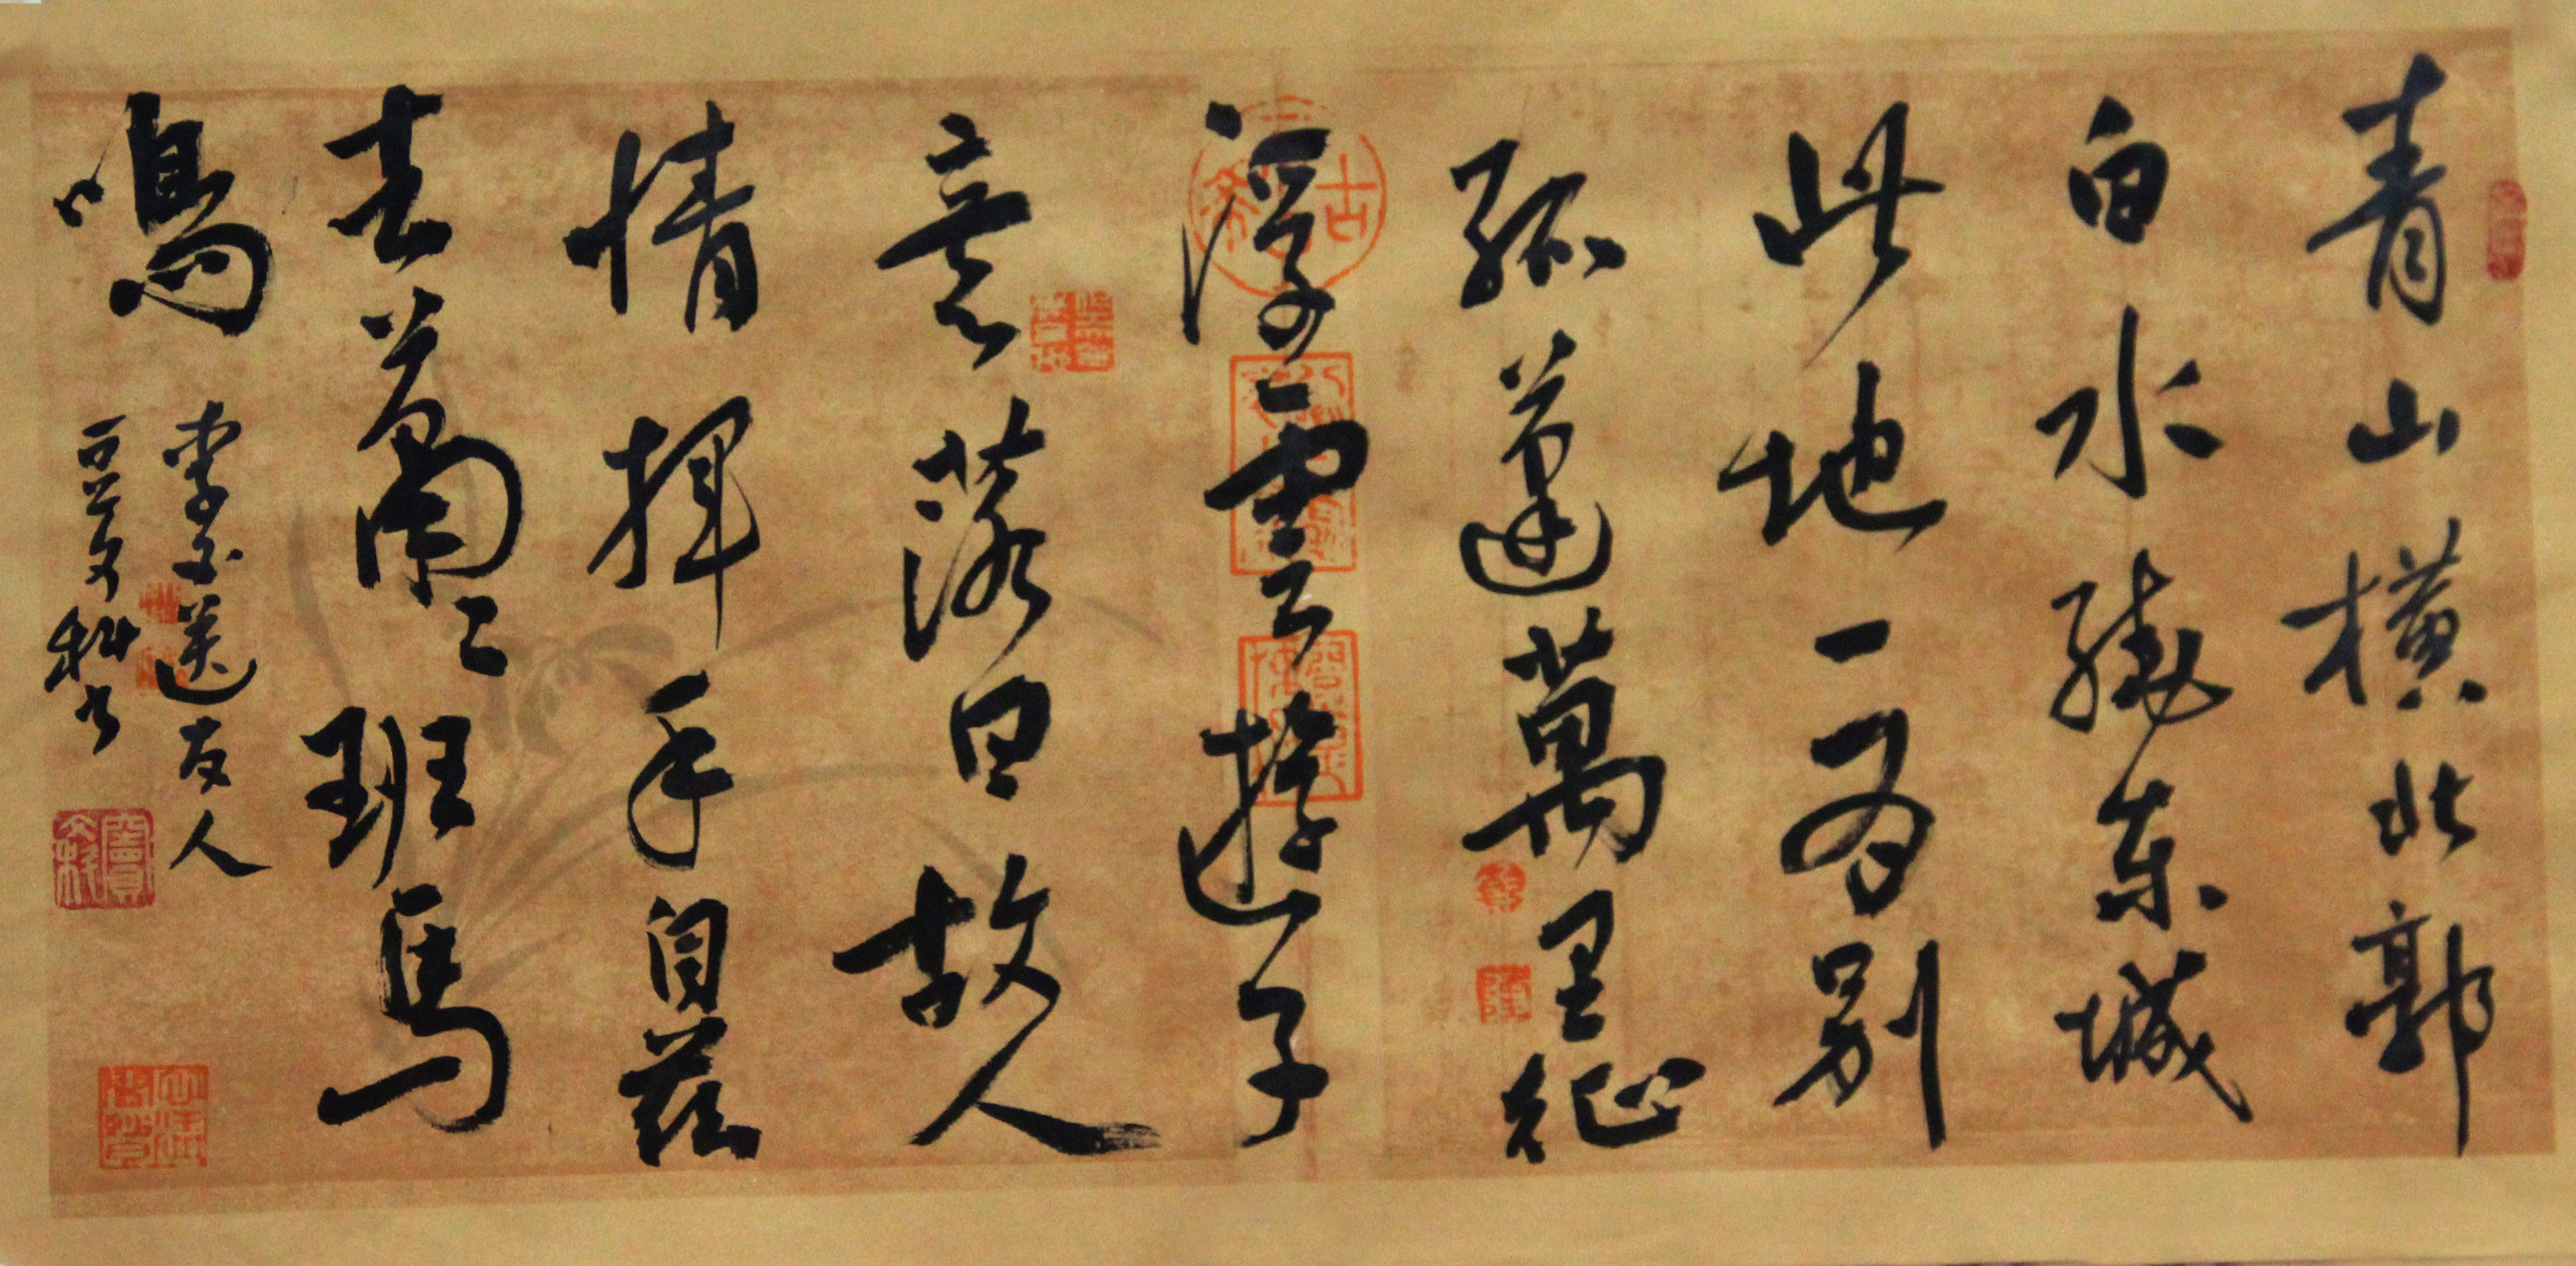 青山橫北郭
白水繞东城
此地一為別
孤蓬萬里征
浮雲遊子
意落日故人
情揮手自茲
去蕭々班馬
鳴
李白送友人
文科书